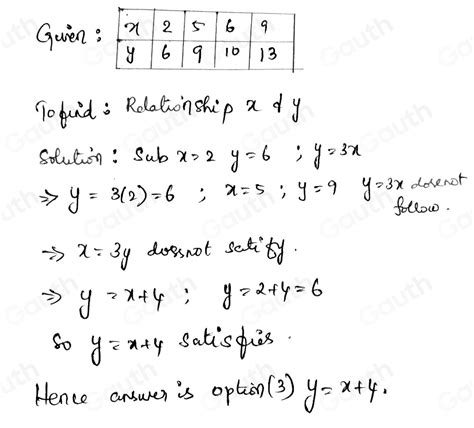 Given : x 2 5 6 9
y 6 9 10 13
To find : Relationship x & y
Solution : Sub x=2 y=6 ; y=3x
⇒ y = 3(2)=6 ; x=5 ; y=9 y=3x doesnot
follow.
⇒ x=3y doesnot satisfy.
⇒ y = x+4 ; y=2+4=6
So y=x+4 satisfies.
Hence answer is option(3) y=x+4.